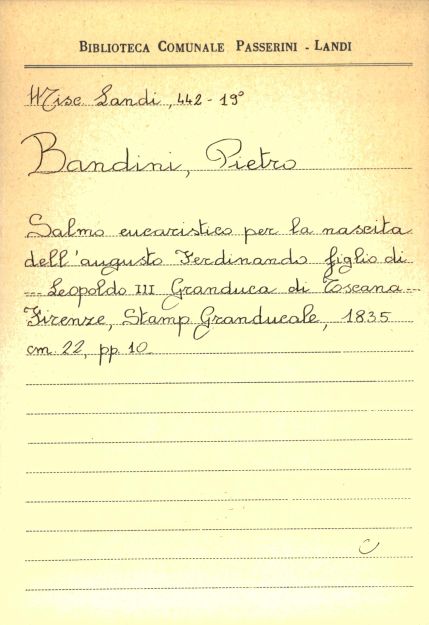 BIBLIOTECA COMUNALE PASSERINI - LANDI
Misc Landi, 442 - 19°
Bandini, Pietro
Salmo eucaristico per la nascita
dell'augusto Ferdinando figlio di
--- Leopoldo III Granduca di Toscana ---
Firenze, Stamp Granducale, 1835
cm. 22, pp. 10
C